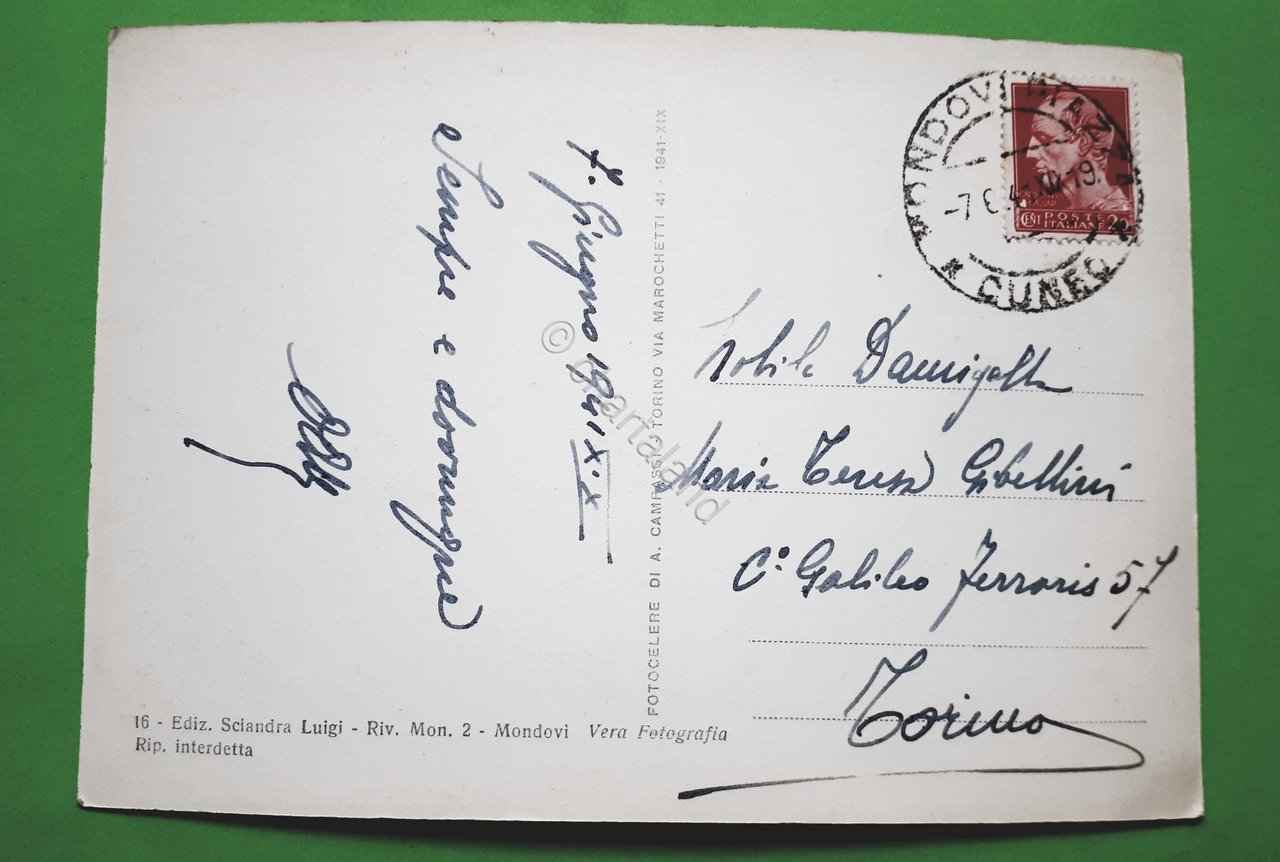 7. Giugno 1941 XIX
Sempre e dovunque
MONDOVI PIAZZA
CUNEO
POSTE
ITALIANE
CENT 20
Nobile Damigella
Maria Teresa Gibellini
C.o Galileo Ferraris 57
Torino
FOTOCELERE DI A. CAMPASSI - TORINO VIA MAROCHETTI 41 - 1941-XIX
16 - Ediz. Sciandra Luigi - Riv. Mon. 2 - Mondovì Vera Fotografia
Rip. interdetta
© Chartaland